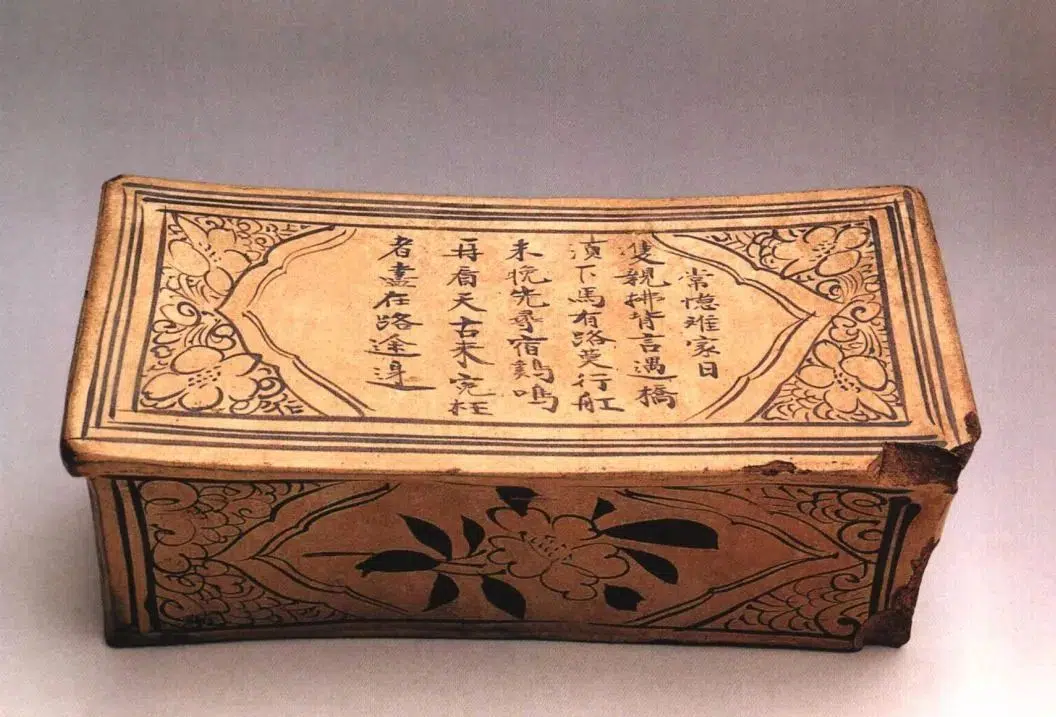 常憶难家日
隻親拂背言遇橋
湏下馬有路莫行舡
未晚先尋宿鷄鳴
再看天古来寃枉
者盡在路途边